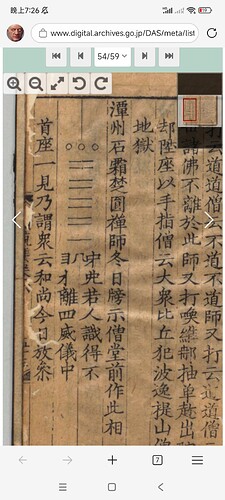 晚上7:26
www.digital.archives.go.jp/DAS/meta/list
54/59
打云道道僧云不道不道師又打云道道僧云
諸佛不離於此師又打喚維那抽單趂出
却陞座以手指僧云大衆比丘犯波逸提山僧
地獄
潭州石霜楚圓禪師冬日牓示僧堂前作此相
若人識得不
離四威儀中
首座一見乃謂衆云和尚今日放叅
7